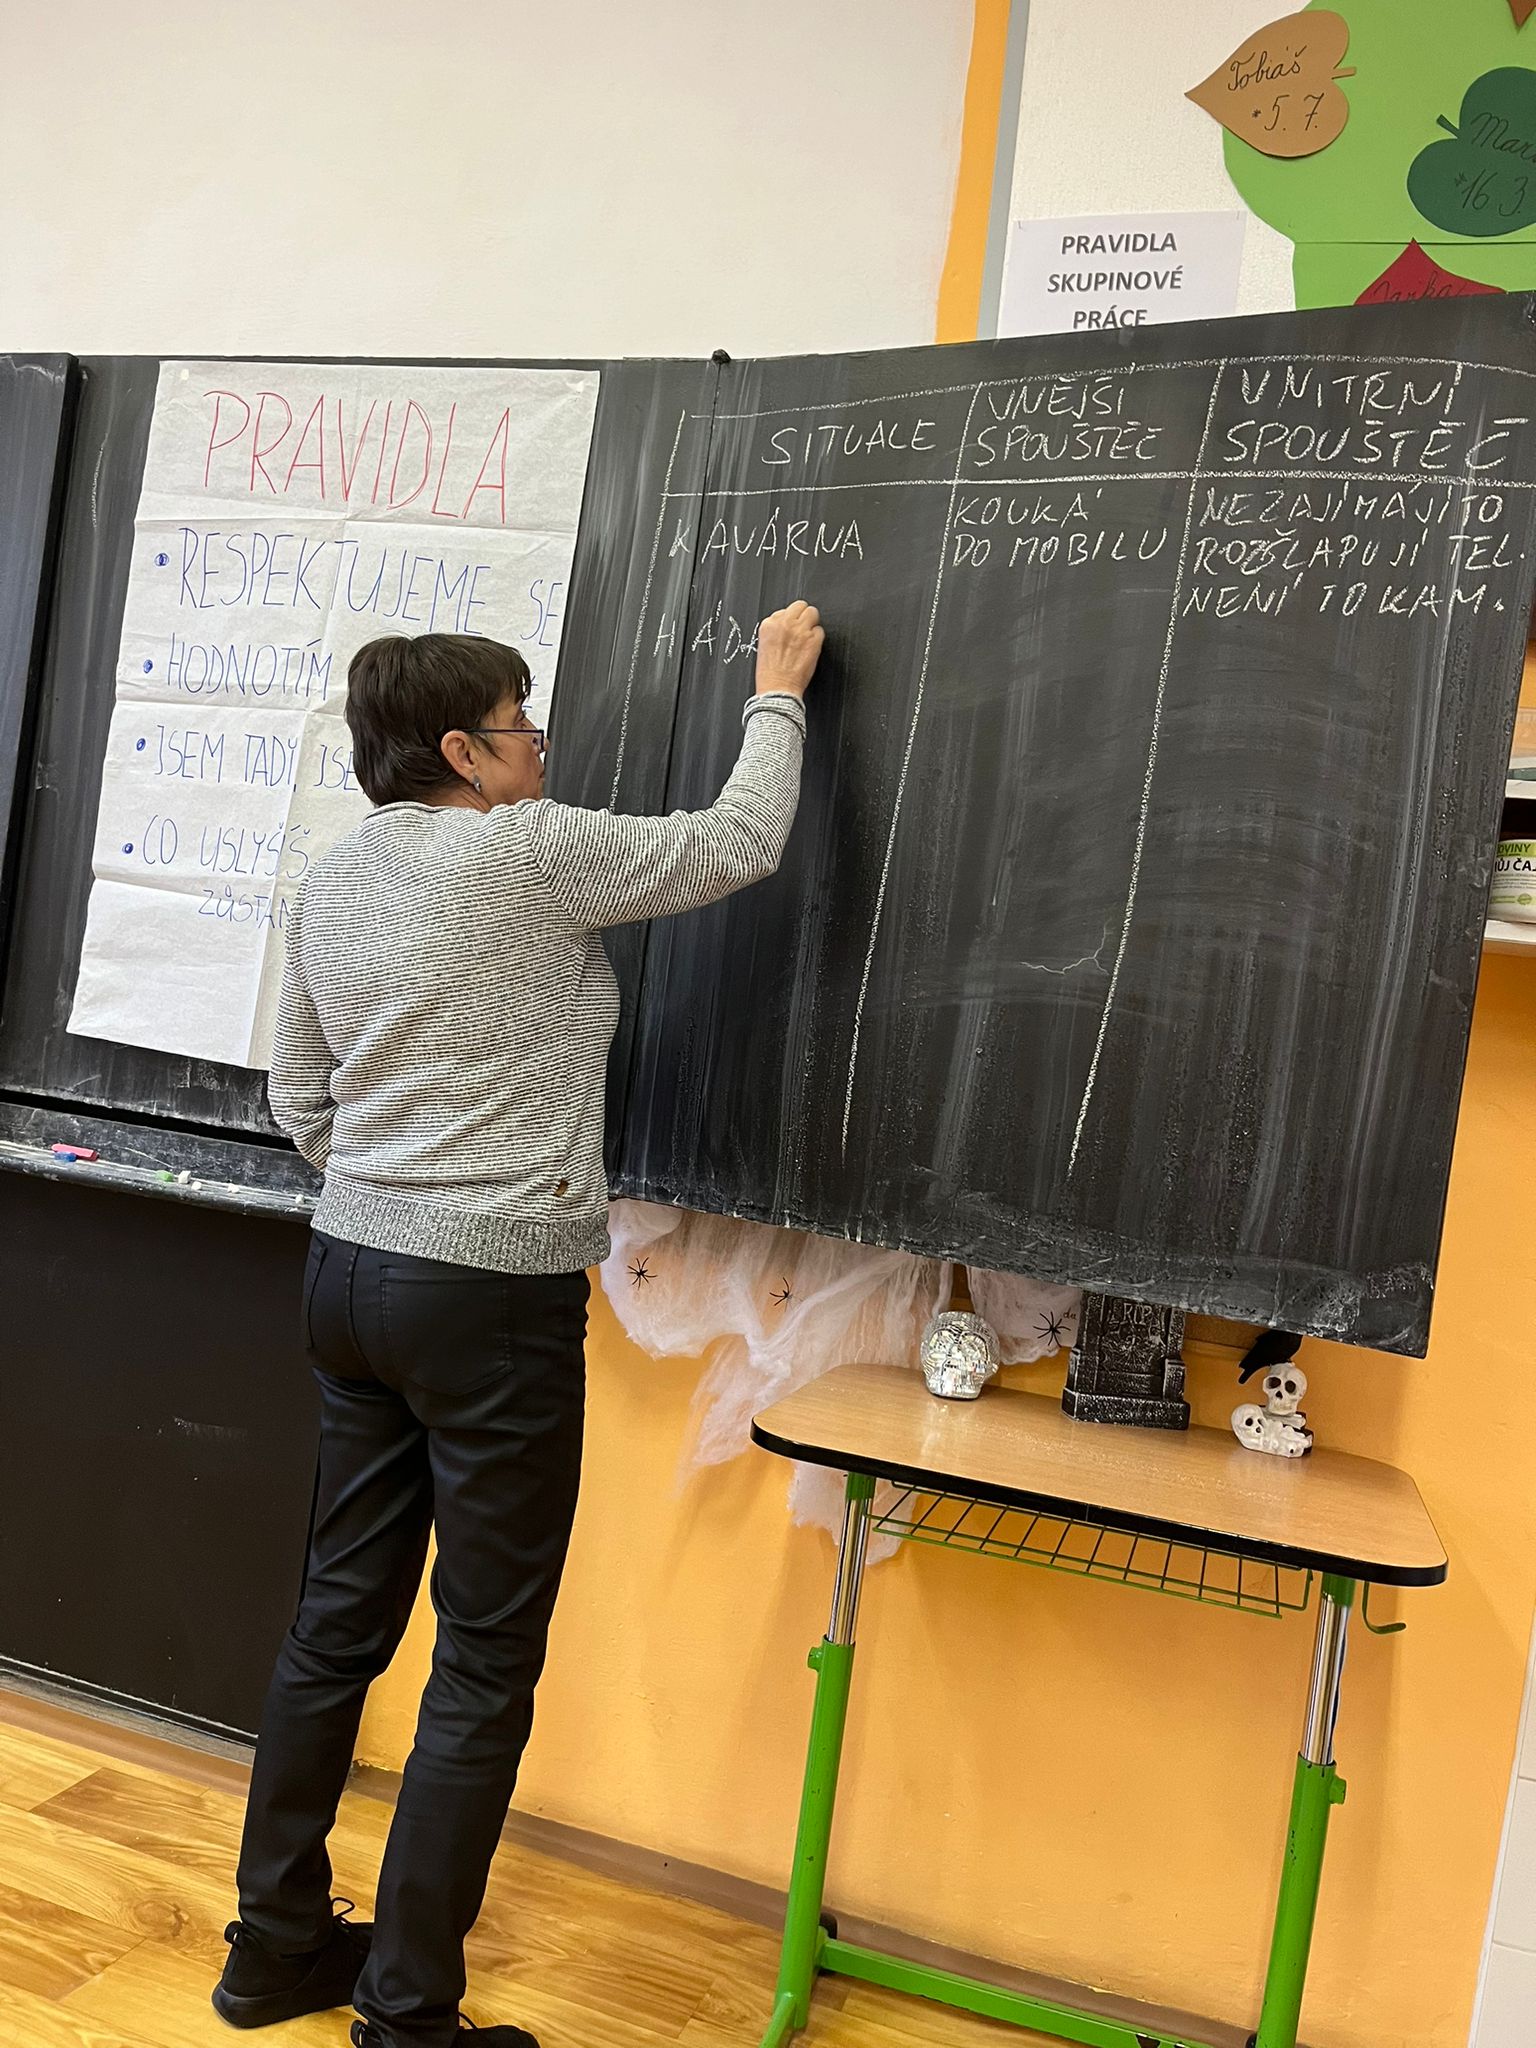 Tobiáš
*5. 7.
*16. 3.
PRAVIDLA
SKUPINOVÉ
PRÁCE
PRAVIDLA
• RESPEKTUJEME SE
• HODNOTÍM
• JSEM TADY, JSE
• CO USLYŠÍŠ
ZŮSTAN
SITUALE
VNĚJŠÍ
SPOUŠTĚČ
VNITŘNÍ
SPOUŠTĚČ
KAVÁRNA
KOUKÁ
DO MOBILU
NEZAJÍMÁJÍ TO
ROZŠLAPUJÍ TEL.
NENÍ TO KAM.
HÁDA
RIP
OVINY
ŮJ ČAJ